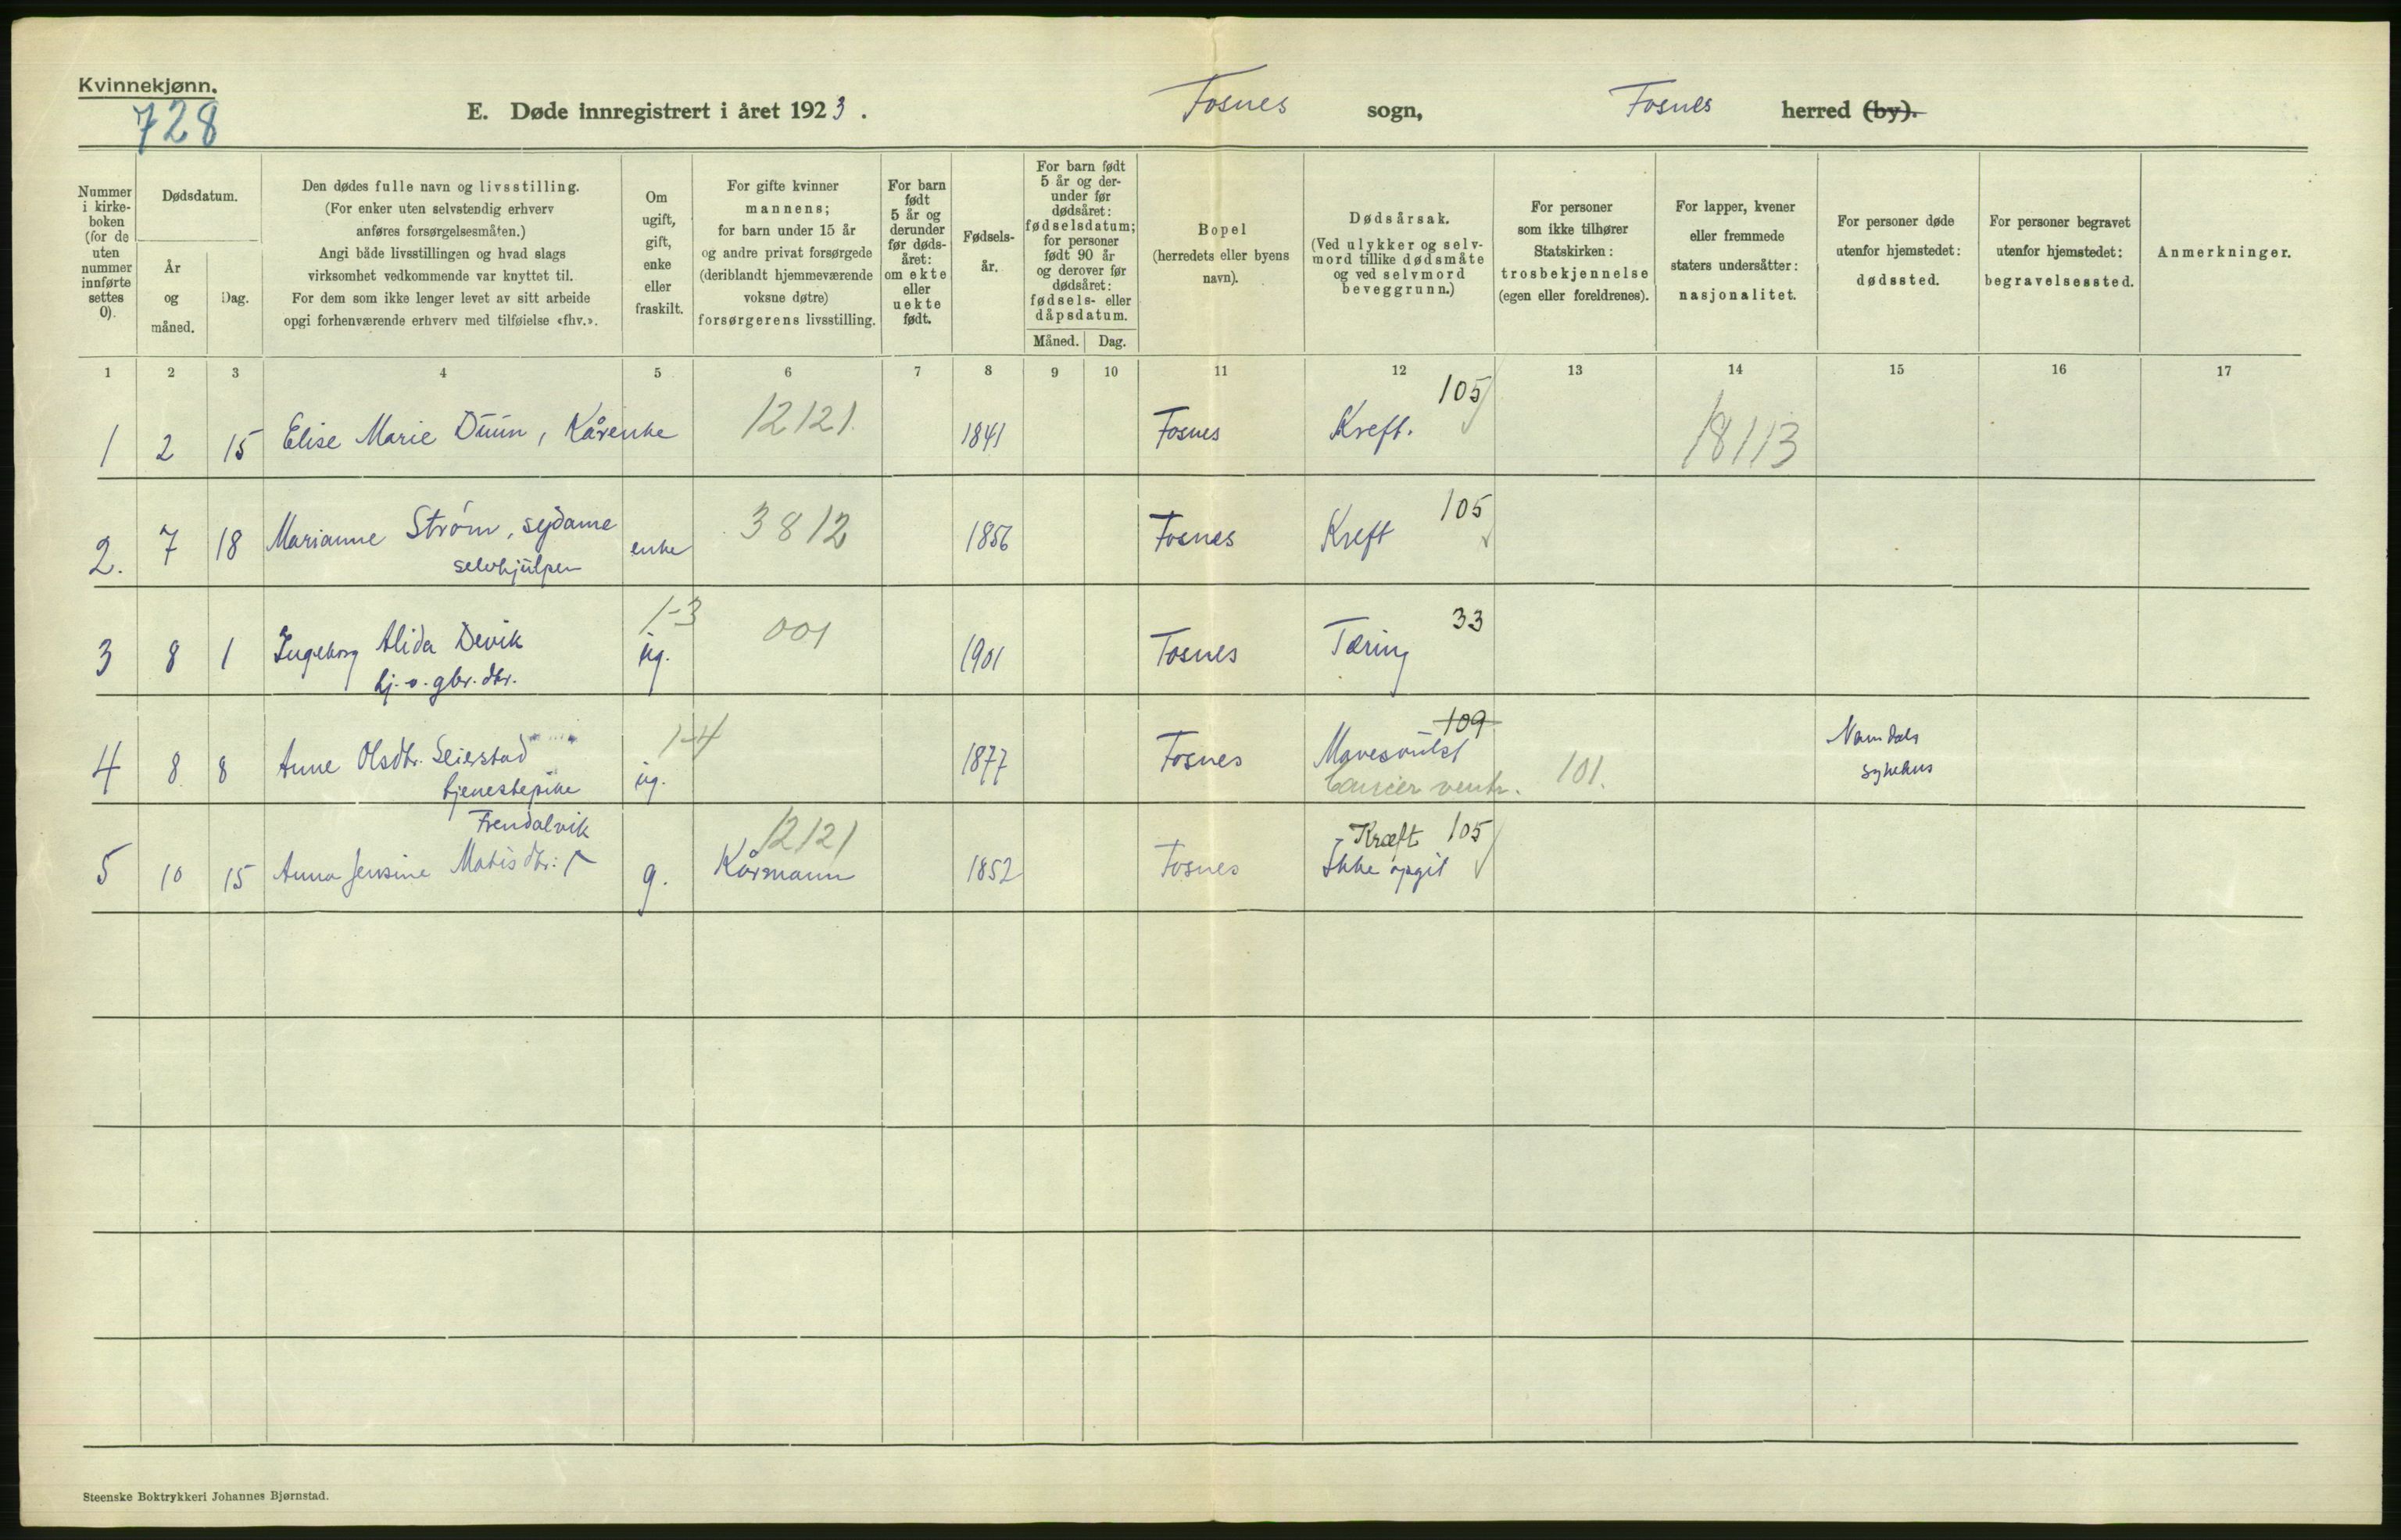 Kvinnekjønn.
728
E. Døde innregistrert i året 1923.
Fosnes sogn, Fosnes herred (by).
Nummer
i kirke-
boken
(for de
uten
nummer
innførte
settes
0).
Dødsdatum.
År
og
måned.
Dag.
Den dødes fulle navn og livsstilling.
(For enker uten selvstendig erhverv
anføres forsørgelsesmåten.)
Angi både livsstillingen og hvad slags
virksomhet vedkommende var knyttet til.
For dem som ikke lenger levet av sitt arbeide
opgi forhenværende erhverv med tilføielse «fhv.».
Om
ugift,
gift,
enke
eller
fraskilt.
For gifte kvinner
mannens;
for barn under 15 år
og andre privat forsørgede
(deriblandt hjemmeværende
voksne døtre)
forsørgerens livsstilling.
For barn
født
5 år og
derunder
før døds-
året:
om ekte
eller
uekte
født.
Fødsels-
år.
For barn født
5 år og der-
under før
dødsåret:
fødselsdatum;
for personer
født 90 år
og derover før
dødsåret:
fødsels- eller
dåpsdatum.
Måned. Dag.
Bopel
(herredets eller byens
navn).
Dødsårsak.
(Ved ulykker og selv-
mord tillike dødsmåte
og ved selvmord
beveggrunn.)
For personer
som ikke tilhører
Statskirken:
trosbekjennelse
(egen eller foreldrenes).
For lapper, kvener
eller fremmede
staters undersåtter:
nasjonalitet.
For personer døde
utenfor hjemstedet:
dødssted.
For personer begravet
utenfor hjemstedet:
begravelsessted.
Anmerkninger.
1 2 3 4 5 6 7 8 9 10 11 12 13 14 15 16 17
12121. 105
1 2 15 Elise Marie Duun, Kårenke 1841 Fosnes Kreft. 18113
3812 105
2. 7 18 Marianne Strøm, sydame enke 1856 Fosnes Kreft
selvhjulpen
1-3 001 33
3 8 1 Ingeborg Alida Devik ug. 1901 Fosnes Tæring
hj. v. gbr. dtr.
1-4 109
4 8 8 Anne Olsdtr. Seierstad ug. 1877 Fosnes Mavesvulst Namdals
tjenestepike Cancer ventr. 101. sykehus
Frendalvik 12121 Kræft 105
5 10 15 Anna Jensine Matisdtr: g. Kårmann 1852 Fosnes Ikke opgit
Steenske Boktrykkeri Johannes Bjørnstad.